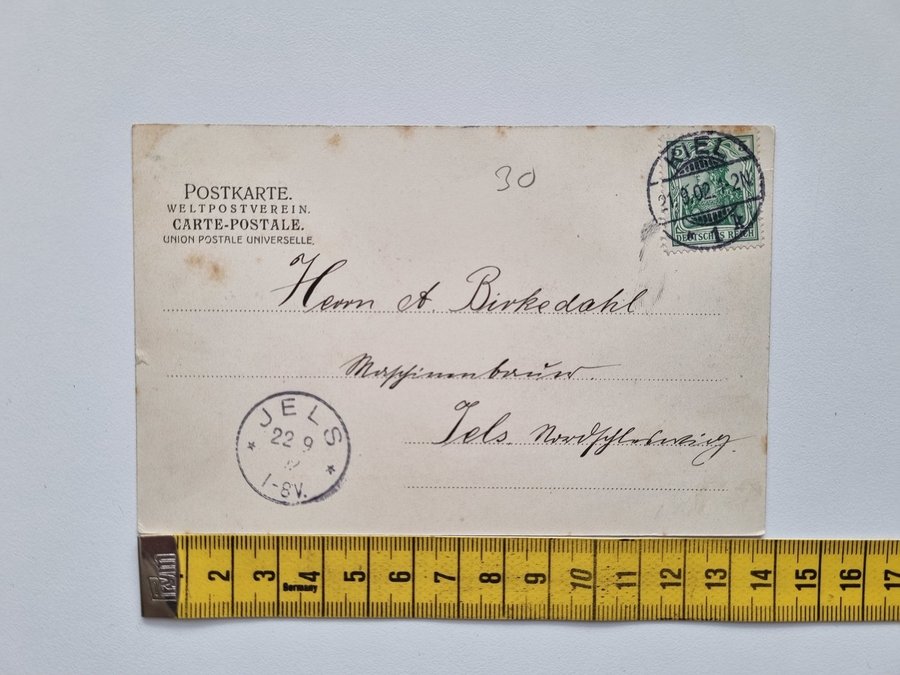 30
POSTKARTE.
WELTPOSTVEREIN.
CARTE-POSTALE.
UNION POSTALE UNIVERSELLE.
5
KIEL
21.9.02.1-2N.
1
DEUTSCHES REICH
Herrn A. Birkedahl
Maschinenbauer.
Jels Nordschleswig.
JELS
22 9
1-8V.
1 2 3 4 5 6 7 8 9 10 11 12 13 14 15 16 17
Germany